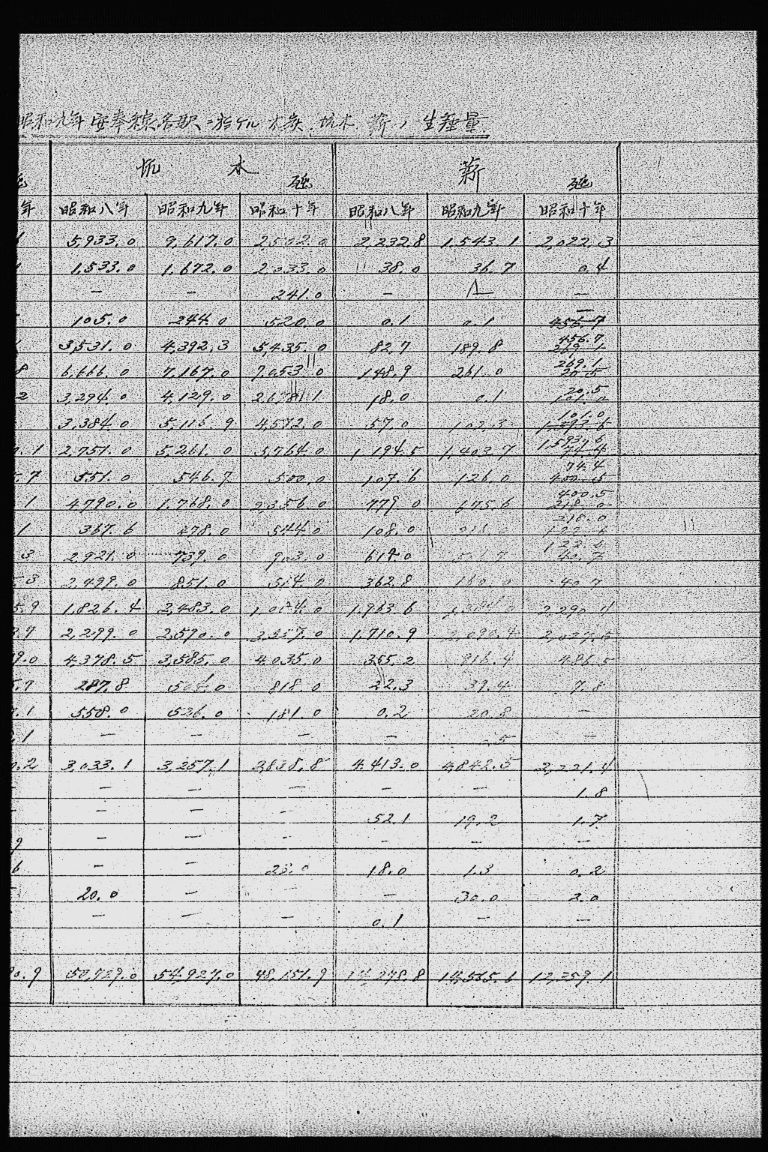 昭和九年安奉線各駅ニ於ケル木炭、坑木、薪ノ生産量
坑 木 瓲 薪 瓲
年 昭和八年 昭和九年 昭和十年 昭和八年 昭和九年 昭和十年
5,933.0 9,617.0 2,502.0 2,232.8 1,543.1 2,022.3
1,533.0 1,672.0 2,033.0 38.0 36.7 0.4
— — 241.0 — —
105.0 244.0 520.0 0.1 0.1 —
3,531.0 4,392.3 5,435.0 82.7 189.8 456.7
8 6,666.0 7,167.0 7,053.0 148.9 261.0 269.1
2 3,294.0 4,129.0 18.0 0.1 20.5
3,384.0 5,116.9 4,572.0 57.0 101.0
.1 2,751.0 5,261.0 3,764.0 1,194.5 1,403.7 1,593.6
.7 551.0 546.7 500.0 107.6 126.0 74.4
1 4,790.0 1,768.0 2,356.0 779.0 675.6 400.5
1 367.6 478.0 544.0 108.0 218.0
3 2,921.0 739.0 903.0 614.0
.3 2,499.0 851.0 514.0 362.8 40.7
5.9 1,826.4 2,483.0 1,963.6 2,290.4
.7 2,299.0 2,590.0 1,710.9
9.0 4,378.5 3,585.0 4,035.0 355.2 816.4 486.5
.7 287.8 504.0 818.0 22.3 39.4 7.8
.1 558.0 526.0 181.0 0.2 20.8 —
.1 — — — — —
0.2 3,033.1 3,257.1 3,838.8 4,413.0 4,842.5 2,221.4
— — — — — 1.8
— — — 52.1 19.2 1.7
9 — — — — — —
6 — — 23.0 18.0 1.3 0.2
20.0 — — — 30.0 2.0
— — — 0.1 — —
0.9 50,729.0 54,927.0 48,151.9 14,278.8 14,565.1 12,259.1